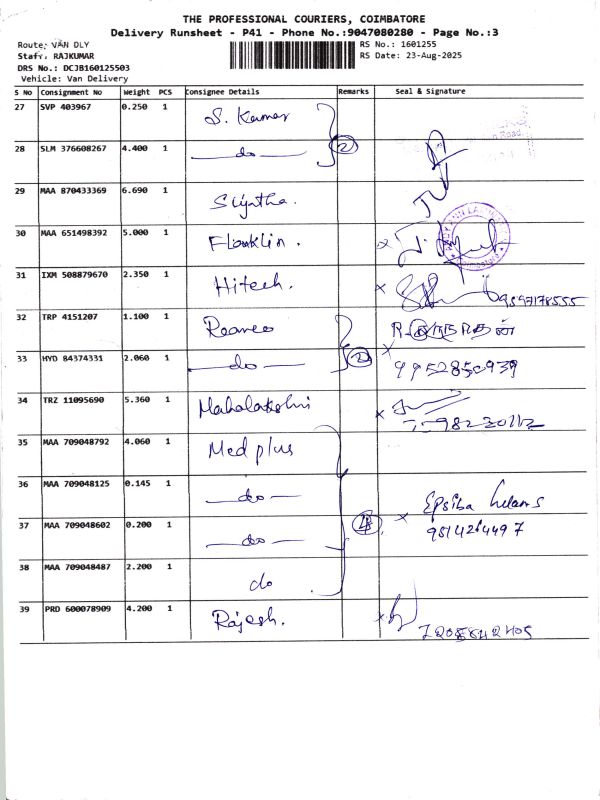 THE PROFESSIONAL COURIERS, COIMBATORE
Delivery Runsheet - P41 - Phone No.:9047080280 - Page No.:3
Route: VAN DLY
RS No.: 1601255
Staff: RAJKUMAR
RS Date: 23-Aug-2025
DRS No.: DCJB160125503
Vehicle: Van Delivery
S NO Consignment No Weight PCS Consignee Details Remarks Seal & Signature
27 SVP 403967 0.250 1 S. Kumar
28 SLM 376608267 4.400 1 do 2
29 MAA 870433369 6.690 1
30 MAA 651498392 5.000 1 Flanklin.
31 IXM 508879670 2.350 1 Hitech. 9597178555
32 TRP 4151207 1.100 1
33 HYD 84374331 2.060 1 do 2 9952850939
34 TRZ 11095690 5.360 1 Mahalakshmi
35 MAA 709048792 4.060 1 Med plus
36 MAA 709048125 0.145 1 do Epsiba
37 MAA 709048602 0.200 1 do 4
38 MAA 709048487 2.200 1 do
39 PRD 600078909 4.200 1 Rajesh.